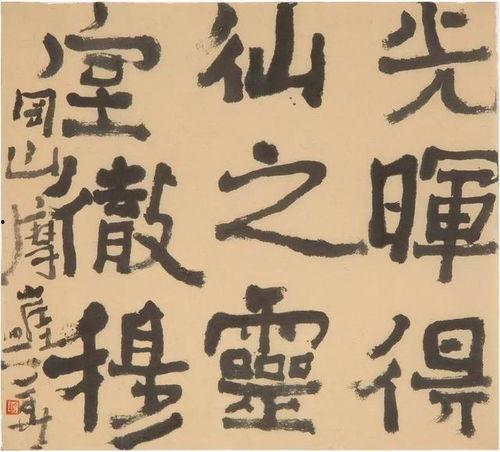 光暉得
仙之靈
室徹穆
岡山摩崖